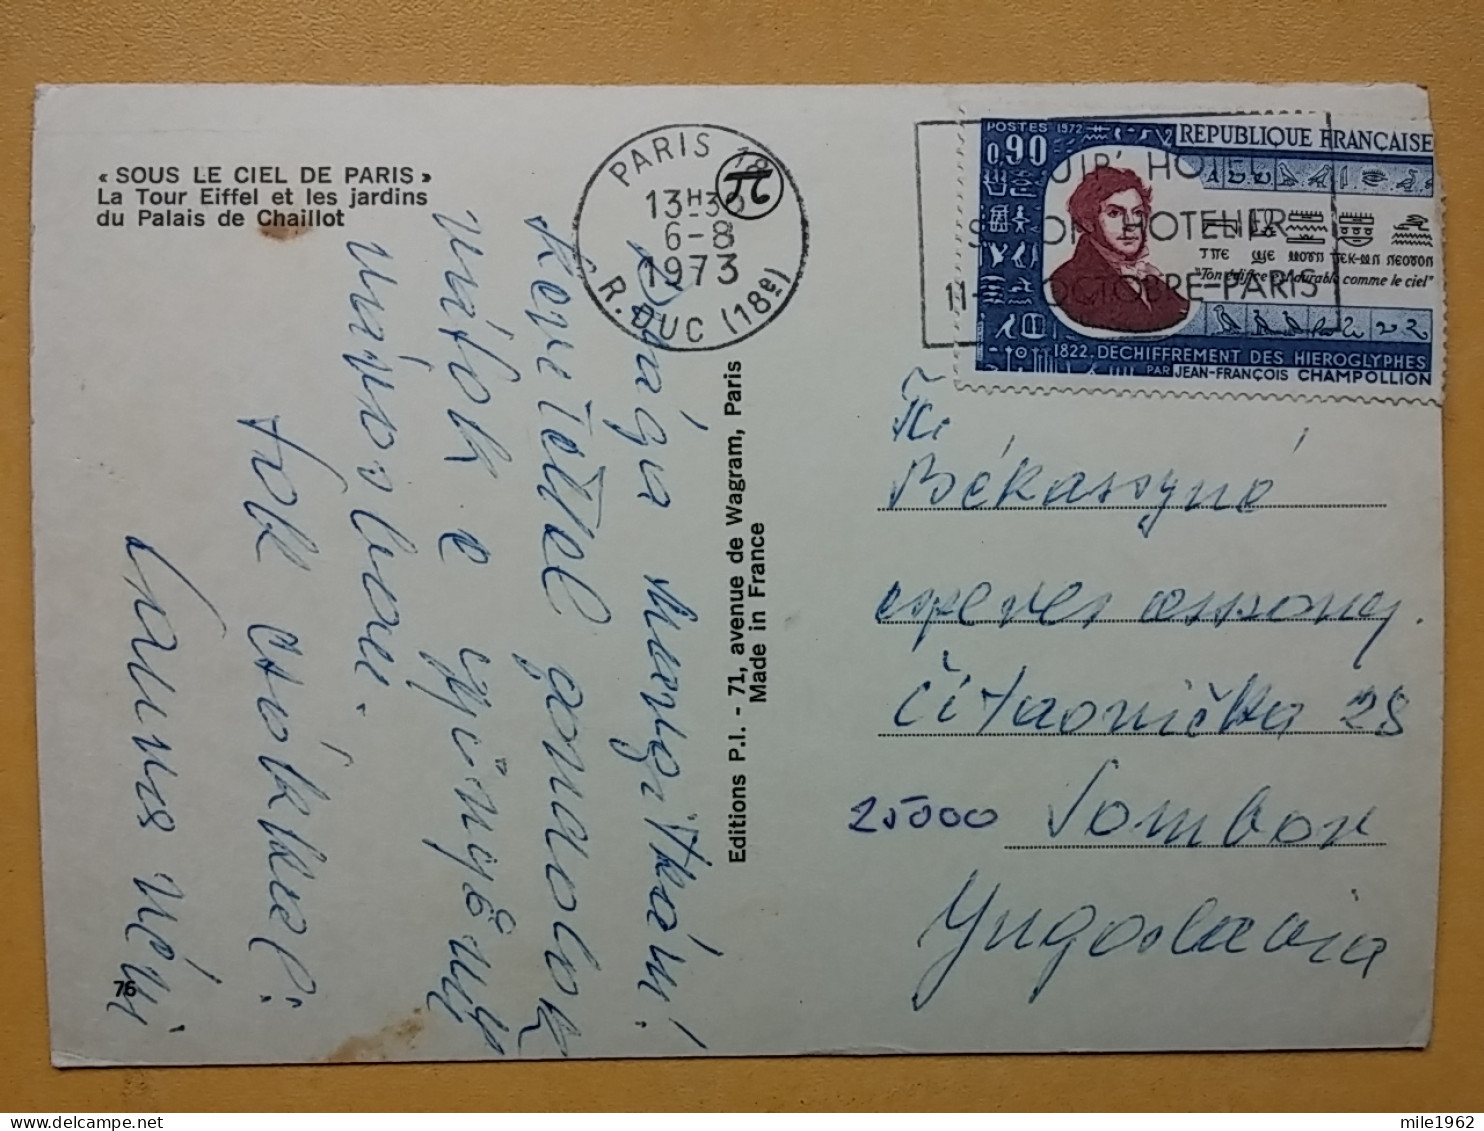 « SOUS LE CIEL DE PARIS »
La Tour Eiffel et les jardins
du Palais de Chaillot
PARIS 18
13H30
6-8
1973
R. DUC (18e)
HOTEL
HOTELIER
11- OCTOBRE-PARIS
POSTES 1972
REPUBLIQUE FRANÇAISE
0,90
"Ton édifice est durable comme le ciel"
1822. DECHIFFREMENT DES HIEROGLYPHES
PAR JEAN-FRANÇOIS CHAMPOLLION
Drága
szeretettel gondolok
rátok e gyönyörű
városban.
Sok csókkal:
néni
Editions P.I. - 71, avenue de Wagram, Paris
Made in France
76
Békassyné
Čitaonička 28
25000 Sombor
Yugoslavia
mile1962